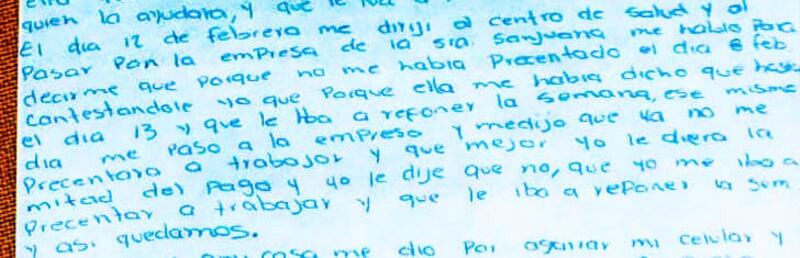 quien la ayudara, y que le iba a
El dia 12 de febrero me diriji al centro de salud y al
Pasar Por la empresa de la sra. Sanjuana me hablo Para
decirme que Porque no me habia Precentado el dia 8 feb
contestandole yo que Porque ella me habia dicho que hasta
el dia 13 y que le iba a reponer la semana, ese mismo
dia me Paso a la empresa y medijo que ya no me
Precentara a trabajar y que mejor yo le diera la
mitad del Pago y yo le dije que no, que yo me iba a
Precentar a trabajar y que le iba a reponer la sem
y asi quedamos.
casa me dio Por mi celular y